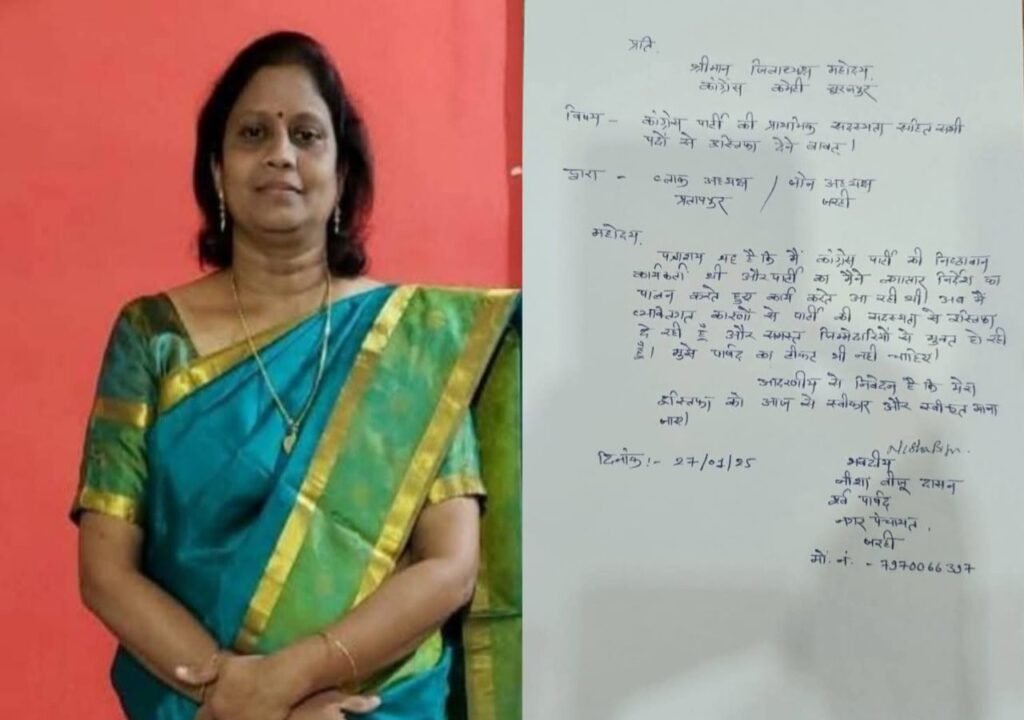 प्रति,
श्रीमान जिलाध्यक्ष महोदय
कांग्रेस कमेटी सूरजपुर
विषय - कांग्रेस पार्टी की प्राथमिक सदस्यता सहित सभी
पदों से इस्तिफा देने बावत।
द्वारा - ब्लाक अध्यक्ष / जोन अध्यक्ष
प्रतापपुर / जरही
महोदय,
यह है कि मैं कांग्रेस पार्टी की निष्ठावान
कार्यकर्ता थी और पार्टी का मैंने लगातार निर्देश का
पालन करते हुए कार्य करते आ रही थी। अब मैं
व्यक्तिगत कारणों से पार्टी की सदस्यता से इस्तिफा
दे रही हूँ और समस्त जिम्मेदारियों से मुक्त हो रही
हूँ। मुझे पार्षद का टीकट भी नही चाहिए।
आदरणीय से निवेदन है कि मेरा
इस्तिफा को आज से स्वीकार और स्वीकृत माना
जाए।
दिनांक:- 27/01/25
भवदीय
नीशा बीजू दासन
पूर्व पार्षद
नगर पंचायत,
जरही
मो. नं. - 7970066397